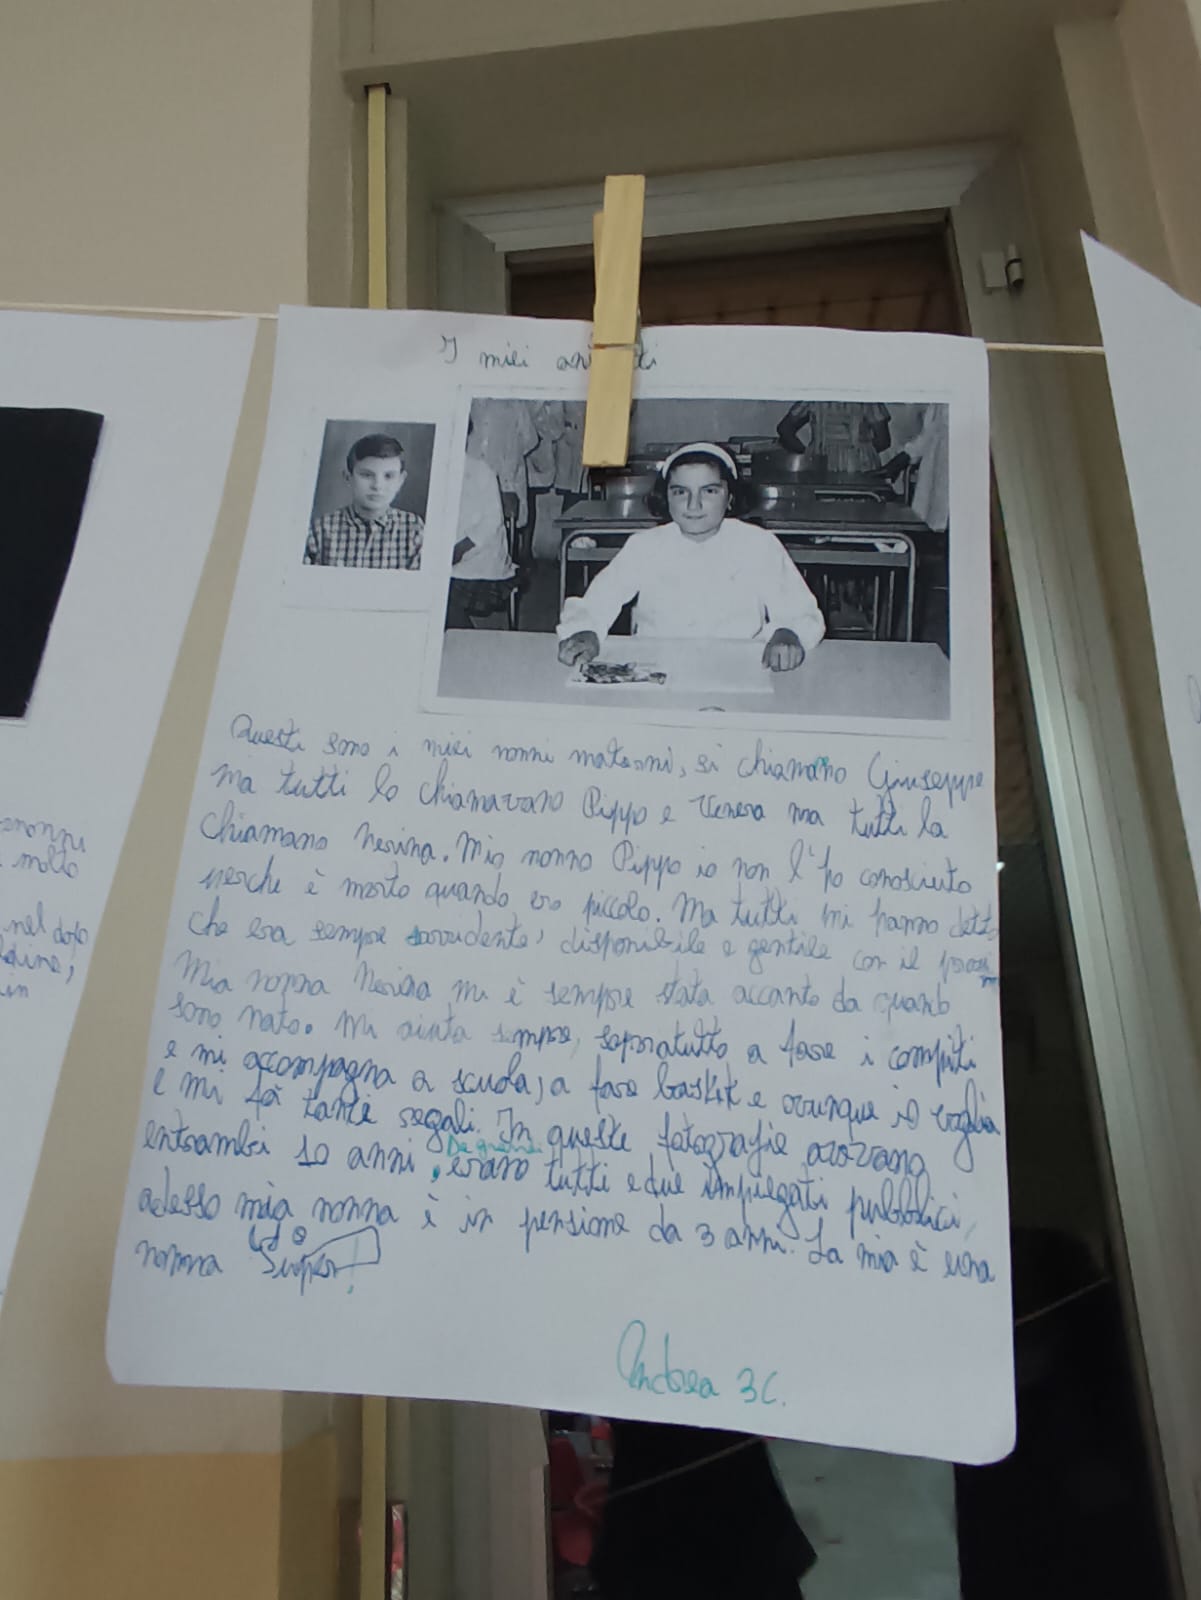 I miei
Questi sono i miei nonni materni, si chiamano Giuseppe
ma tutti lo chiamavano Pippo e Venera ma tutti la
chiamano Nerina. Mio nonno Pippo io non l'ho conosciuto
perche è morto quando ero piccolo. Ma tutti mi hanno detto
che era sempre sorridente, disponibile e gentile con il
Mia nonna Nerina mi è sempre stata accanto da quando
sono nato. Mi aiuta sempre, sopratutto a fare i compiti
e mi accompagna a scuola, a fare basket e ovunque io voglia
e mi fà tanti regali. In queste fotografie avevano
entrambi 10 anni, Da grandi erano tutti e due impiegati pubblici,
adesso mia nonna è in pensione da 3 anni. La mia è una
nonna Super!
Andrea 3C.
nonni
molto
nel dopo
in